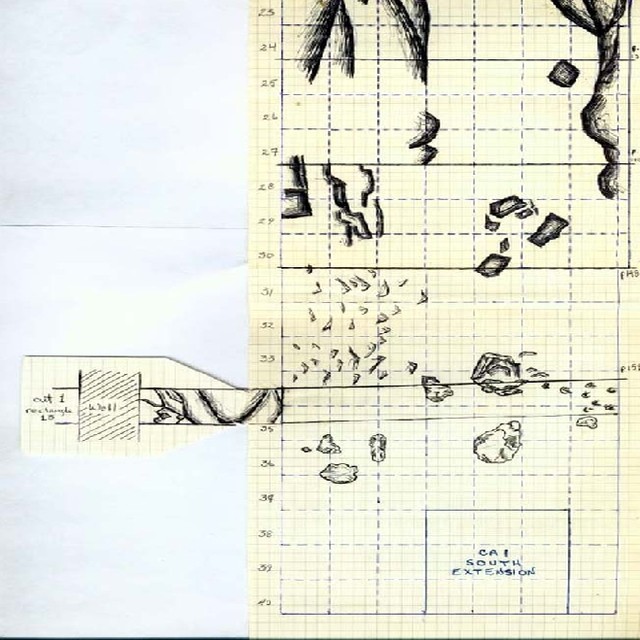 23
24
25
26
27
28
29
30
31
32
33
35
36
38
39
40
cut 1
rectangle
10
Wall
CA 1
SOUTH
EXTENSION